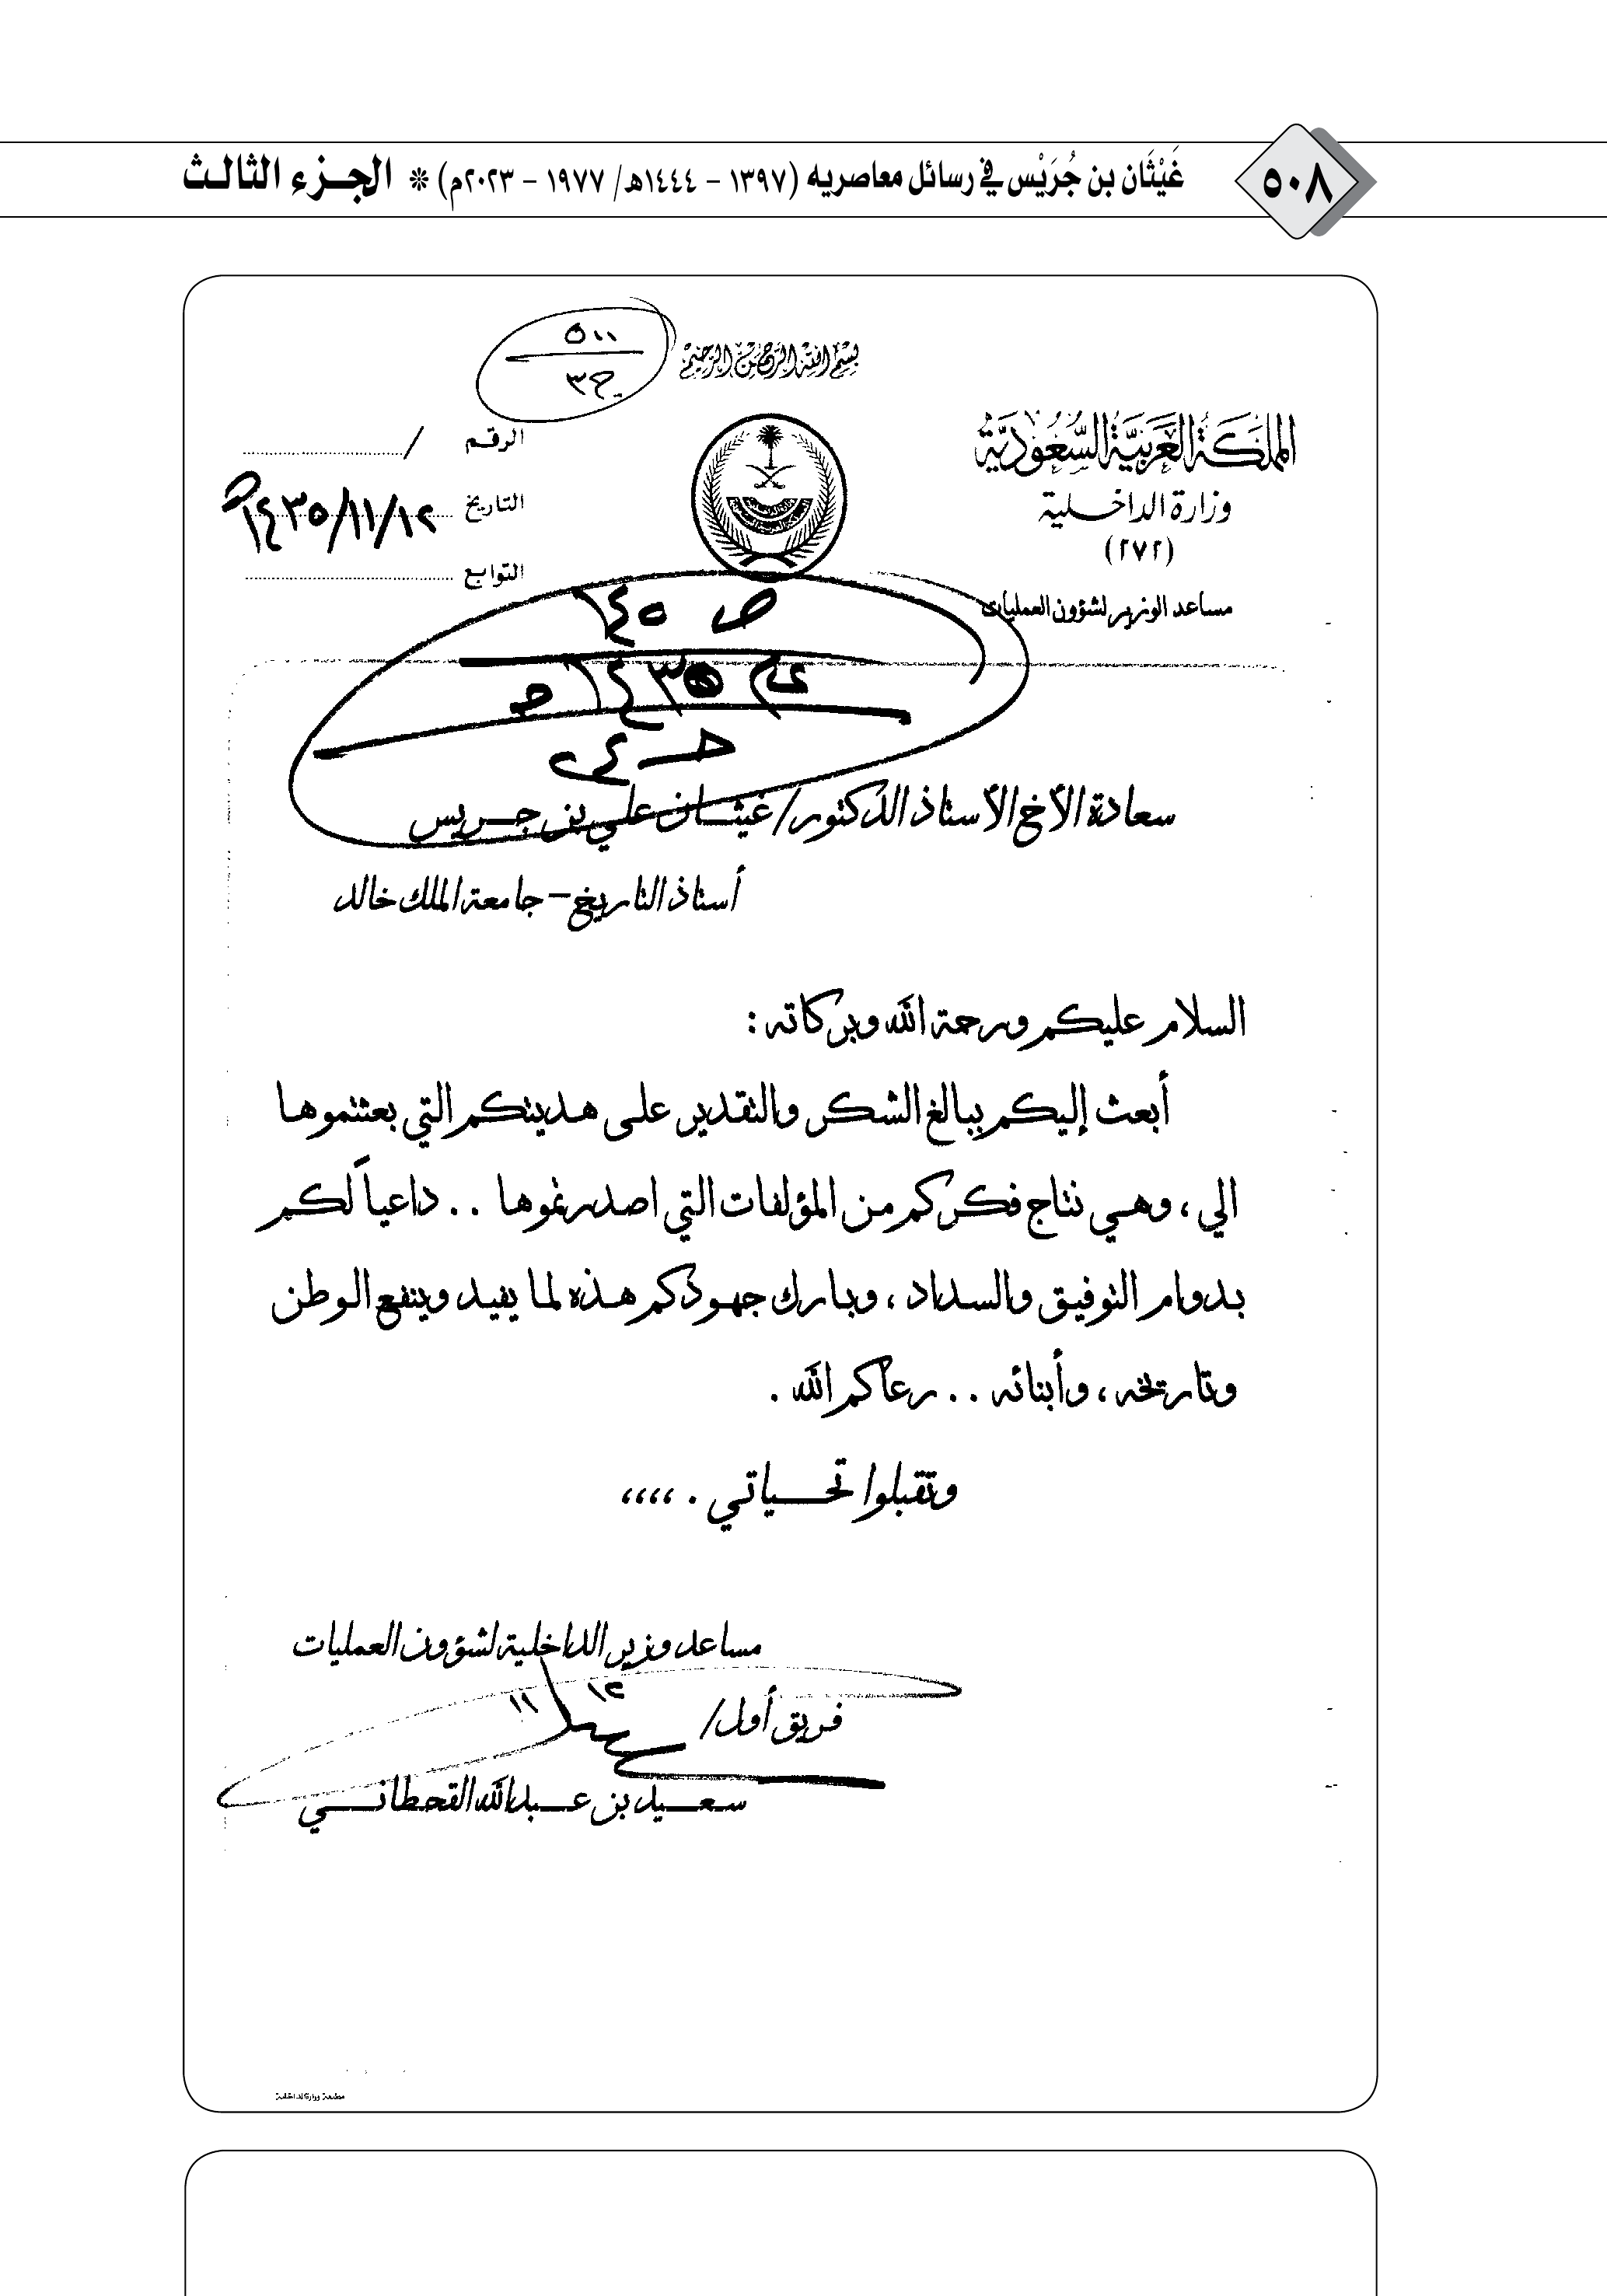 ٥٠٨
غَيْثَان بن جُرَيْس في رسائل معاصريه (١٣٩٧ - ١٤٤٤هـ/ ١٩٧٧ - ٢٠٢٣م) * الجـزء الثالث
بسم الله الرحمن الرحيم
٥٠٠
ج٣
المملكة العربية السعودية
وزارة الداخلية
(٢٧٢)
مساعد الوزير لشؤون العمليات
الرقم /
التاريخ ١٤٣٥/١١/١٢هـ
التوابع
ص ١٤٥
١٤٣٥هـ
سعادة الأخ الأستاذ الدكتور/ غيثان علي بن جريس
أستاذ التاريخ – جامعة الملك خالد
السلام عليكم ورحمة الله وبركاته :
أبعث إليكم ببالغ الشكر والتقدير على هديتكم التي بعثتموها
الي ، وهي نتاج فكركم من المؤلفات التي اصدرتموها . . داعياً لكم
بدوام التوفيق والسداد ، وبارك جهودكم هذه لما يفيد وينفع الوطن
وتاريخه ، وأبنائه . . رعاكم الله .
وتقبلوا تحياتي . ،،،،
مساعد وزير الداخلية لشؤون العمليات
١٢ / ١١
فريق أول/
سعيد بن عبدالله القحطاني
مطبعة وزارة الداخلية